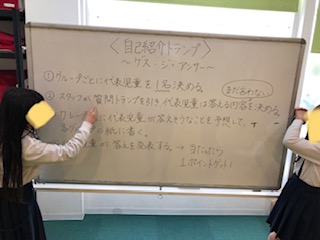 〈自己紹介トランプ〉
〜ゲス・ジ・アンサー〜
①グループごとに代表児童を1名決める。
まだ言わない
②スタッフが質問トランプを引き、代表児童は答える内容を決める。
グループは代表児童が答えそうなことを予想して、
の紙に書く。
児童が答えを発表する。→ 当たったら
1ポイントゲット!